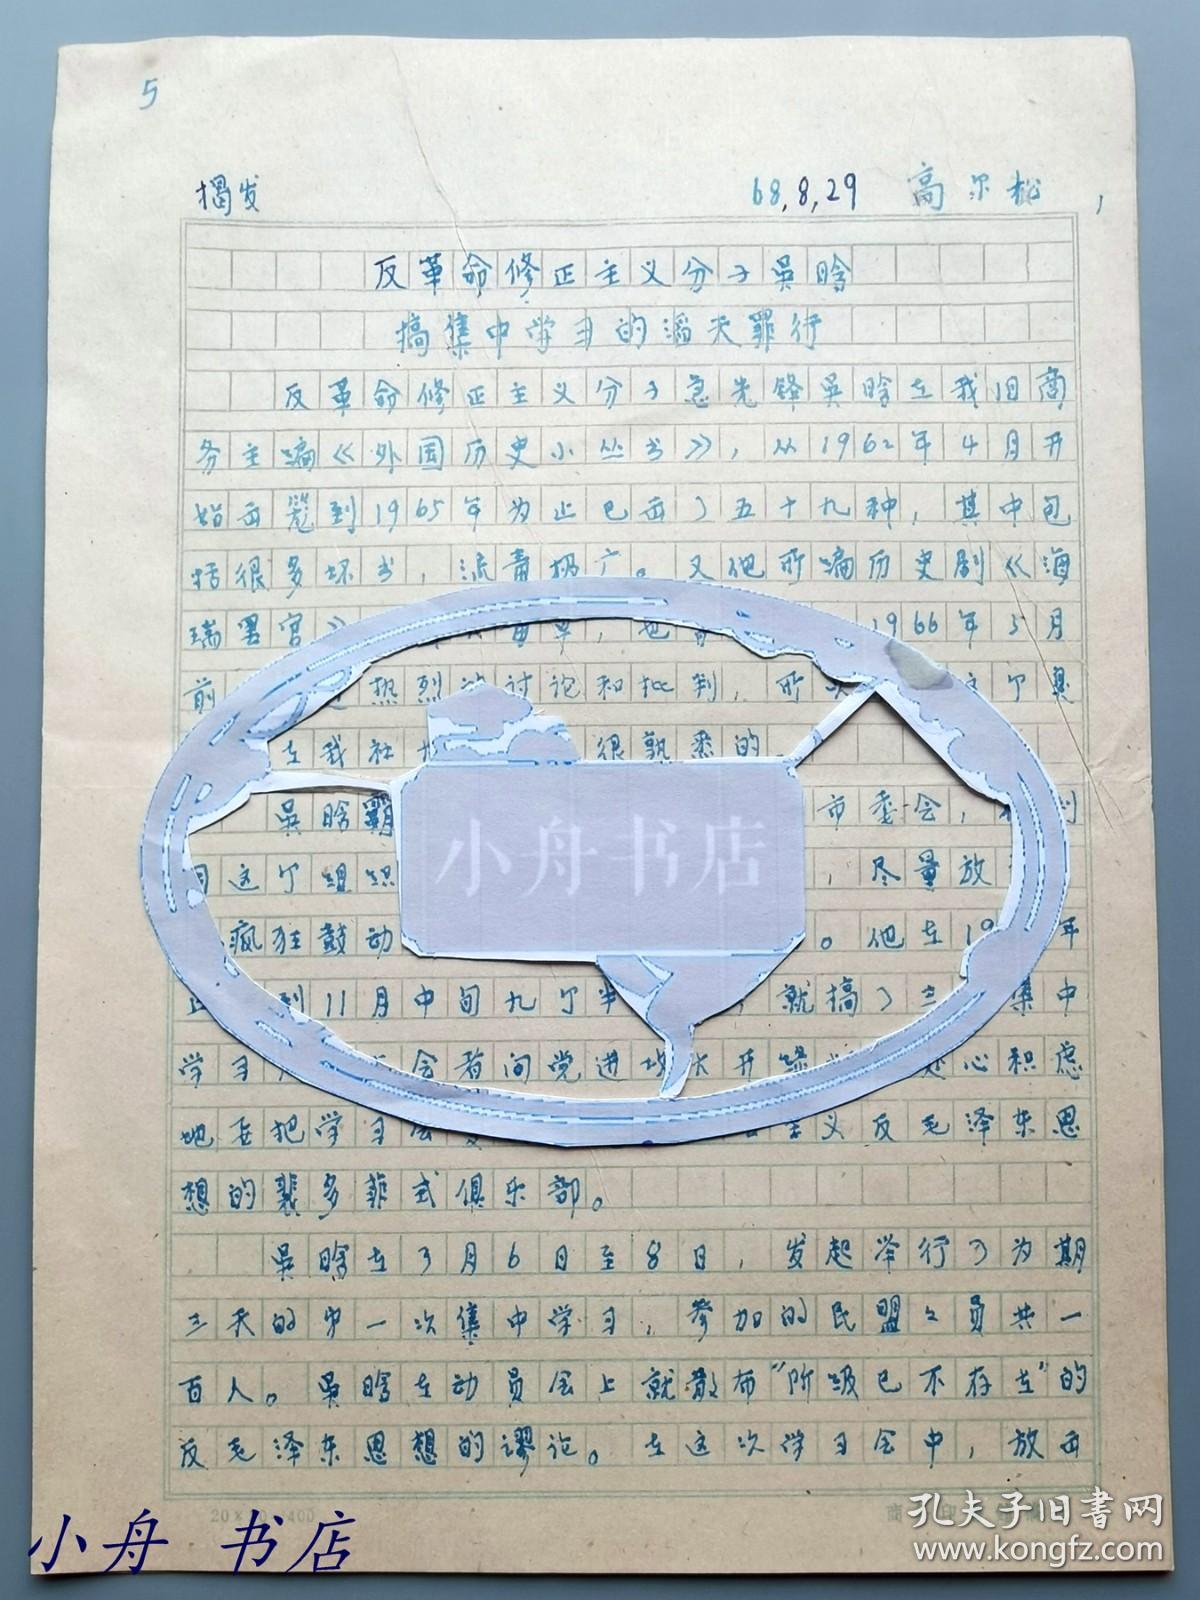 5
揭发
68,8,29 高尔松
反革命修正主义分子吴晗
搞集中学习的滔天罪行
反革命修正主义分子急先锋吴晗在我旧商
务主编《外国历史小丛书》，从1962年4月开
始出笼到1965年为止已出了五十九种，其中包
括很多坏书，流毒极广。又他所编历史剧《海
瑞罢官》 毒草，也 1966年5月
前 热烈的讨论和批判，所 这个吴
在我社 很熟悉的
吴晗霸 市委会，
用这个组织 ，尽量放
疯狂鼓动 。他在19 年
到11月中旬九个半 就搞了三 集中
学习 会者向党进攻大开绿 处心积虑
地要把学习会 主义反毛泽东思
想的裴多菲式俱乐部。
吴晗在3月6日至8日，发起举行了为期
三天的第一次集中学习，参加的民盟之员共一
百人。吴晗在动员会上就散布“阶级已不存在”的
反毛泽东思想的谬论。在这次学习会中，放出
小舟书店
小舟 书店
孔夫子旧书网
www.kongfz.com